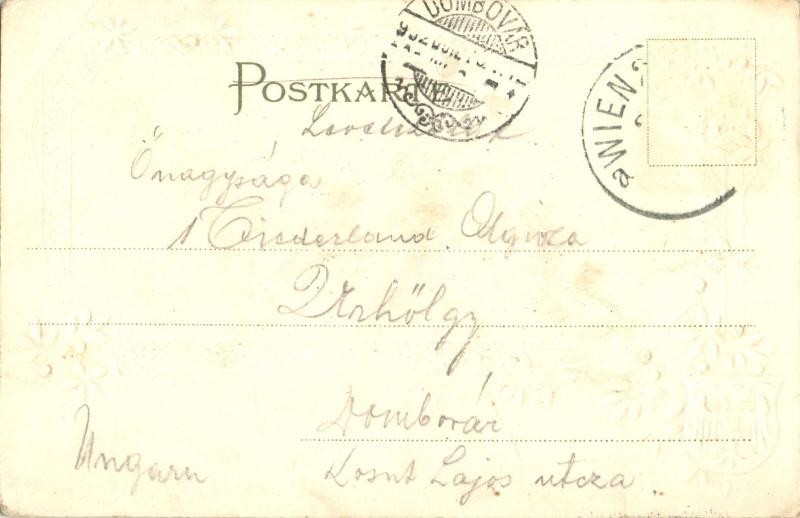 DOMBOVÁR
POSTKARTE
WIEN
Levelezőlap
Őnagysága
Niederland
Úrhölgy
Dombovár
Ungarn
Kosut Lajos utcza